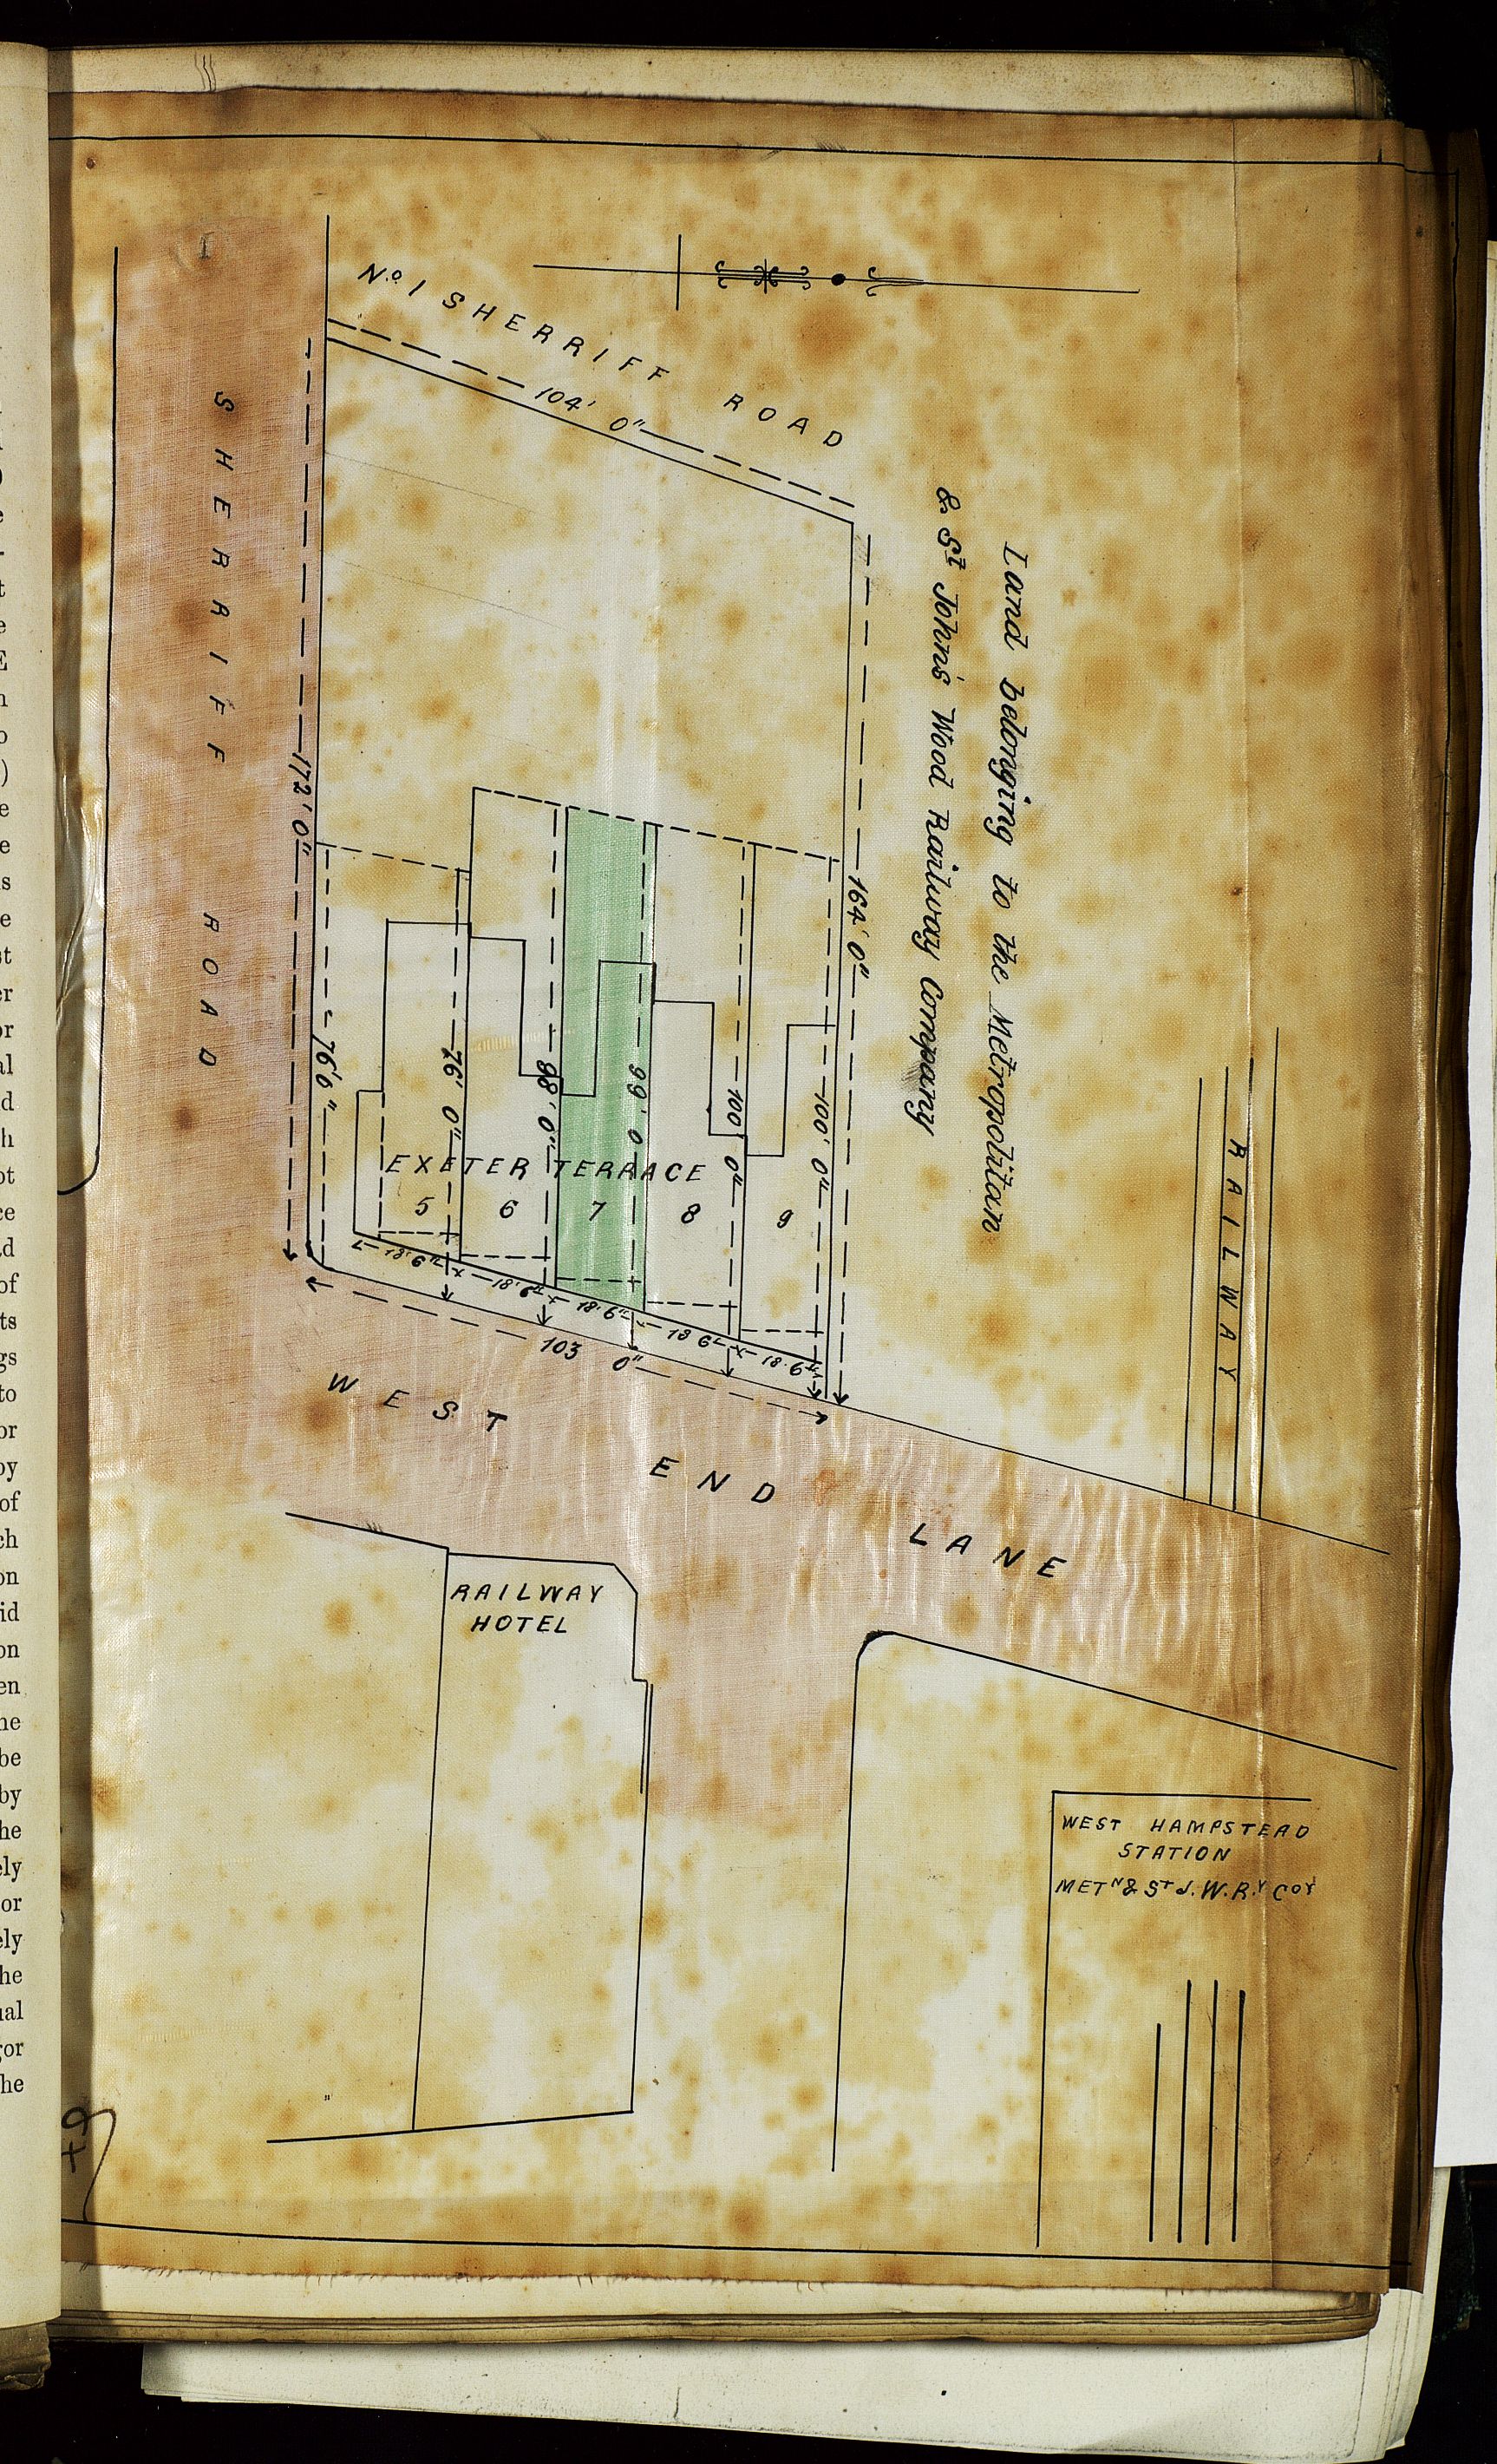 No 1 SHERRIFF ROAD
104' 0"
SHERRIFF ROAD
Land belonging to the Metropolitan
& St Johns' Wood Railway Company
172' 0"
164' 0"
76' 6"
76' 0"
98' 0"
99' 0
100' 0"
100' 0"
EXETER TERRACE
5 6 7 8 9
18'.6" 18'.6" 18'.6" 18 6 18.6"
103 0"
RAILWAY
WEST END LANE
RAILWAY
HOTEL
WEST HAMPSTEAD
STATION
METN & ST J. W. RY COY